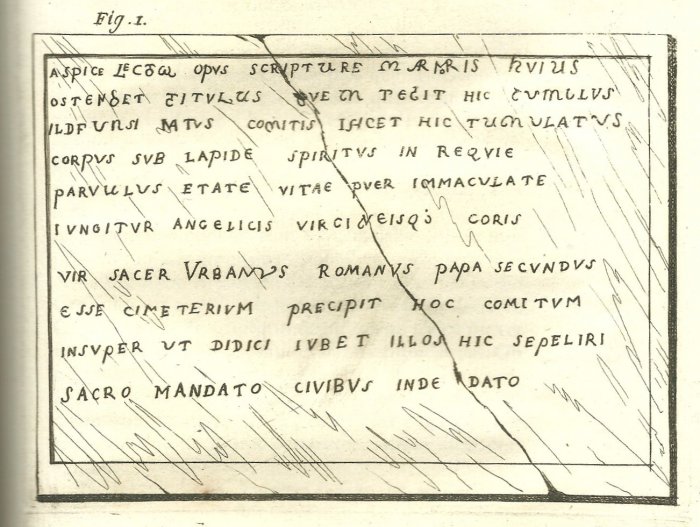 Fig. 1.
ASPICE LECTOR OPVS SCRVPTURE MARMORIS HVIUS
OSTENDET TITULUS QUEM TEGIT HIC TUMULUS
ILDFUNSI NATUS COMITIS IACET HIC TUMULATUS
CORPVS SVB LAPIDE SPIRITVS IN REQVIE
PARVULUS ETATE VITAE PVER IMMACULATE
IVNGITVR ANGELICIS VIRGINEISQ3 CORIS
VIR SACER VRBANVS ROMANVS PAPA SECVNDVS
ESSE CIMETERIVM PRECIPIT HOC COMITVM
INSVPER UT DIDICI IVBET ILLOS HIC SEPELIRI
SACRO MANDATO CIVIBVS INDE DATO